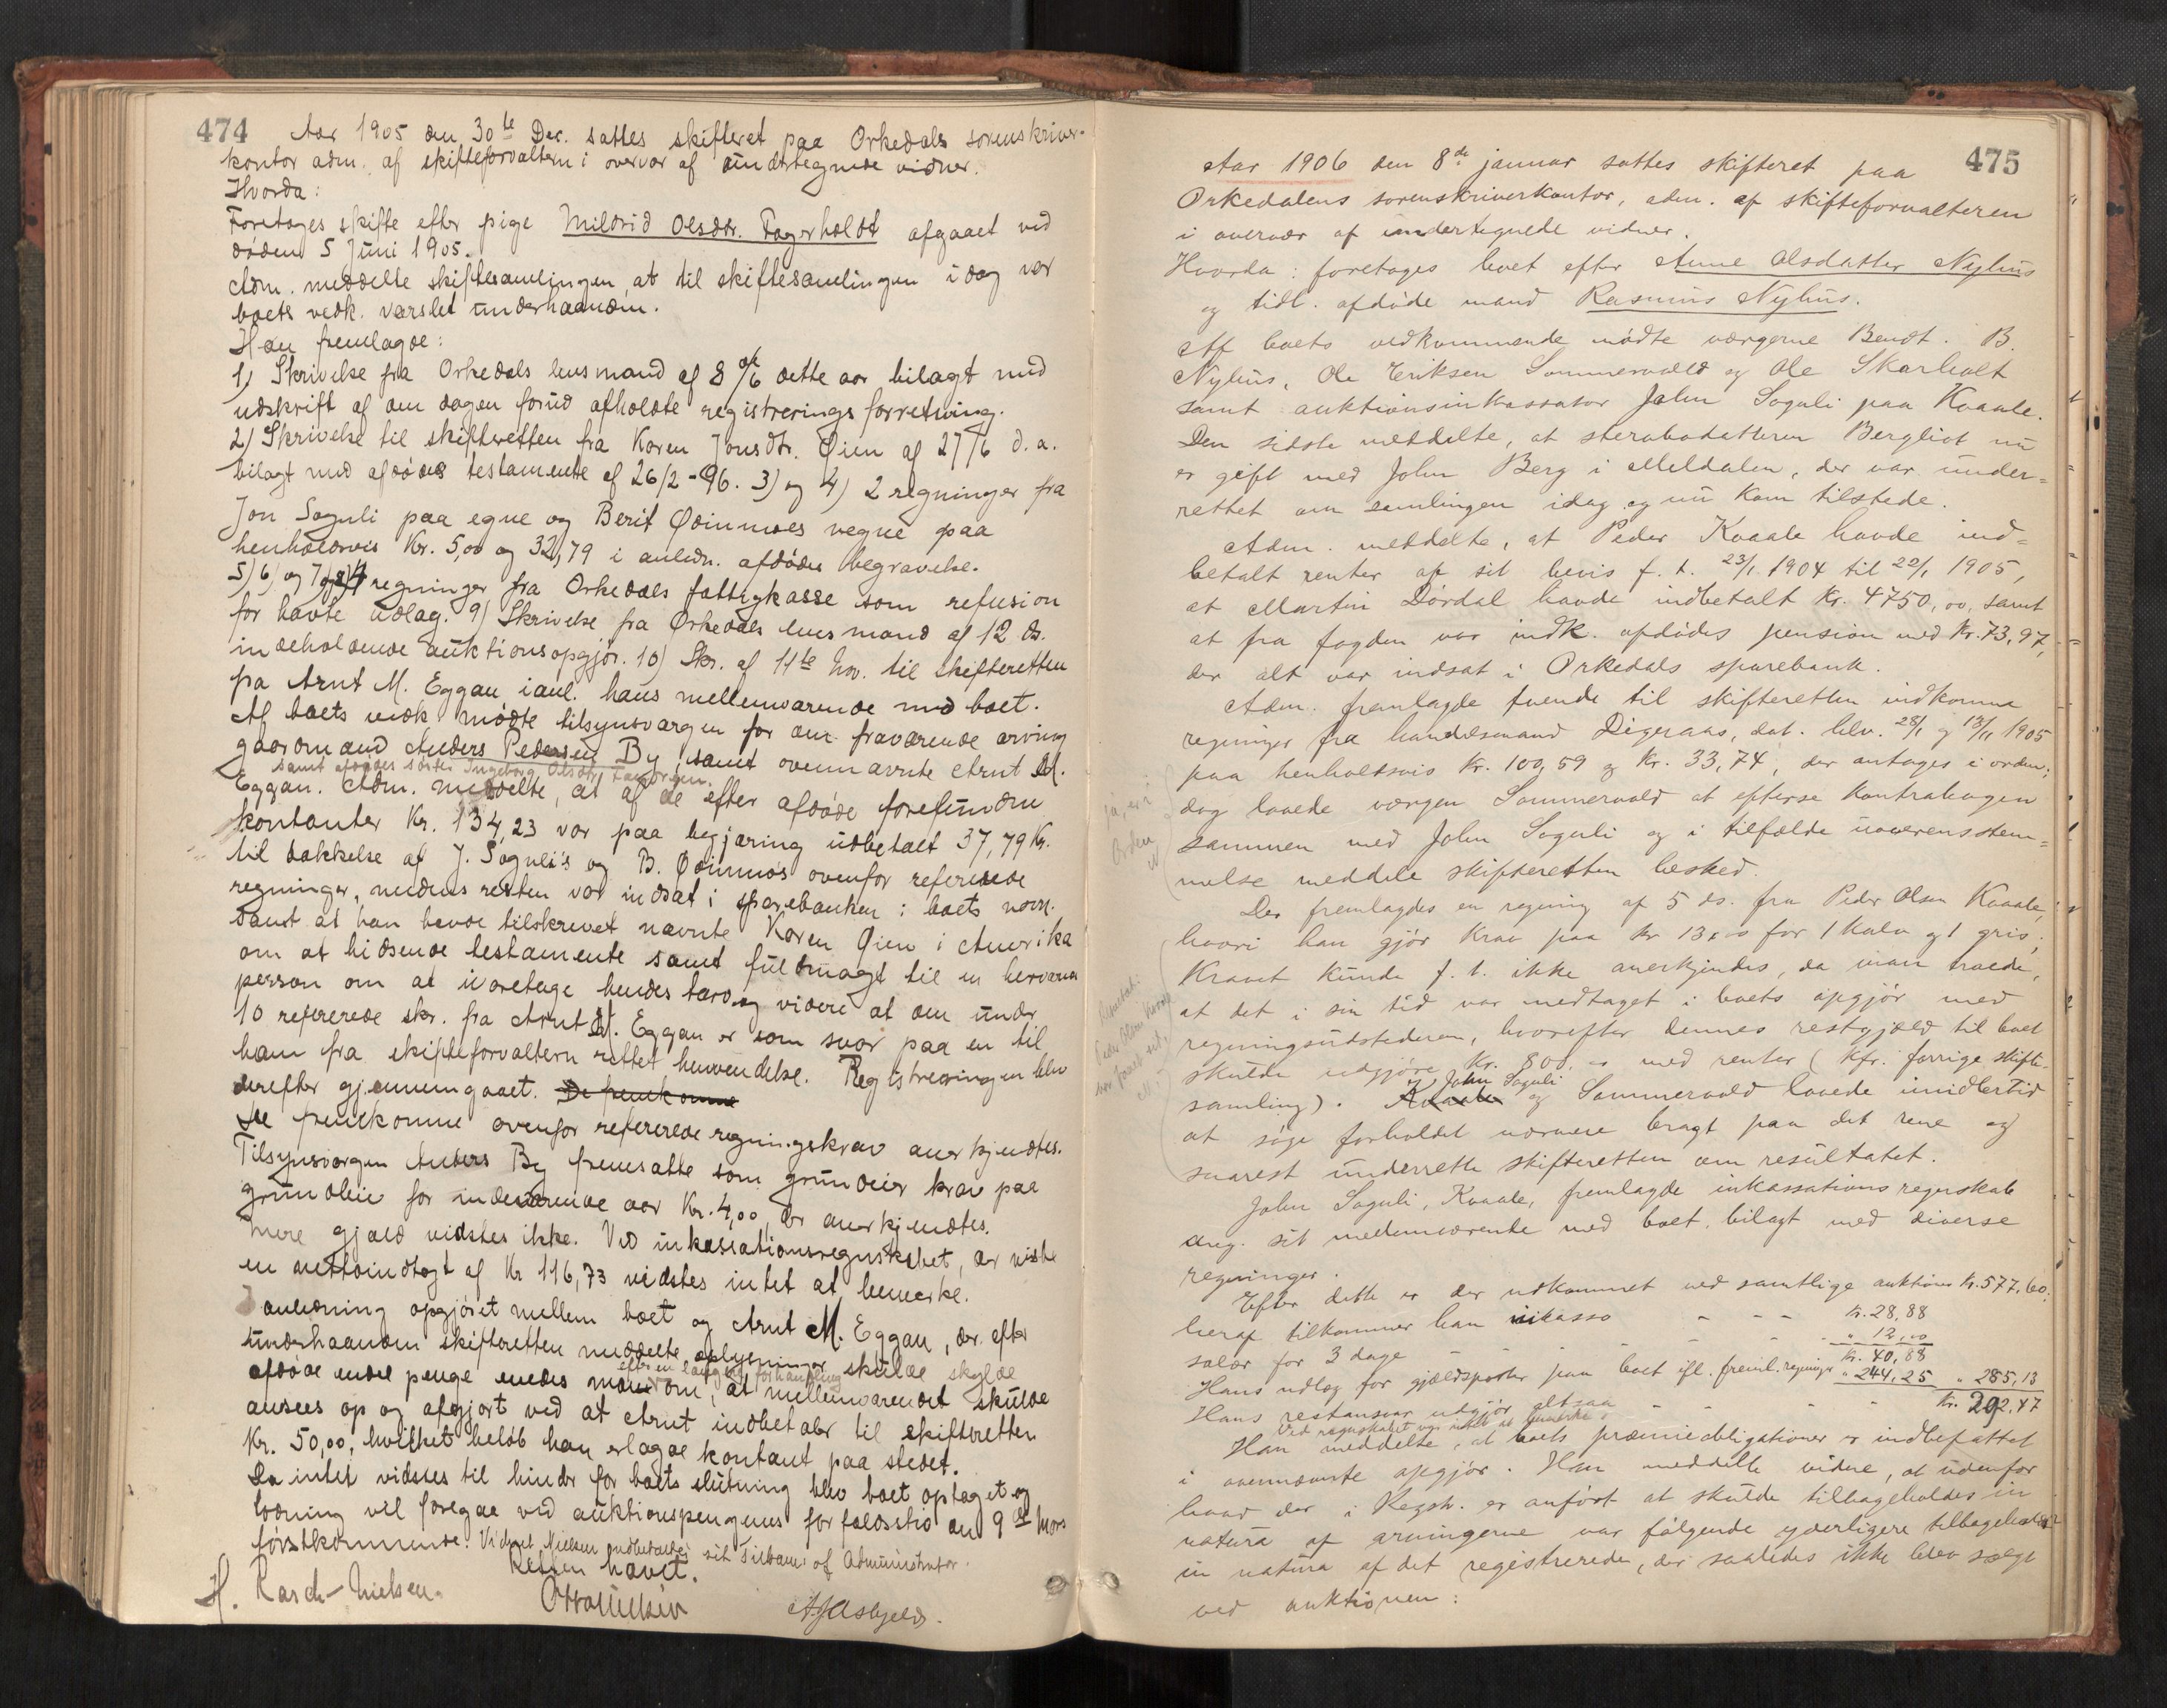 474
Aar 1905 den 30te Dec. sattes skifteret paa Orkedals sorenskriver-
kontor adm. af skifteforvaltern i overvær af undertegnede vidner.
Hvorda:
Foretoges skifte efter pige Mildrid Olsdtr. Fagerholdt afgaaet ved
døden 5 Juni 1905.
Adm. meddelte skiftesamlingen, at til skiftesamlingen idag var
boets vedk. varslet underhaanden.
Han fremlagde:
1) Skrivelse fra Orkedals lensmand af 8/6 dette aar bilagt med
udskrift af den dagen forud afholdte registreringsforretning.
2) Skrivelse til skifteretten fra Karen Jonsdtr. Øien af 27/6 d.a.
bilagt med afdødes testamente af 26/2-96. 3) og 4) 2 regninger fra
Jon Soguli paa egne og Berit Ødinmoes vegne paa
henholdsvis Kr. 5,00 og 32,79 i anledn. afdødes begravelse.
5) 6) og 7) og 8) 4 regninger fra Orkedals fattigkasse som refusion
for havte udlæg. 9) Skrivelse fra Orkedals lensmand af 12 ds.
indeholdende auktionsopgjør. 10) Skr. af 11te Nov. til skifteretten
fra Arnt M. Eggan i anl. hans mellemværende med boet.
Af boets vedk. mødte tilsynsværgen for den fraværende arving
gaardmand Anders Pedersen By, samt ovennævnte Arnt M.
samt afdødes søster Ingeborg Olsdtr.
Eggan. Adm. meddelte, at af de efter afdøde forefundne
kontanter Kr. 134,23 var paa begjæring udbetalt 37,79 Kr.
til dækkelse af J. Soguli's og B. Ødinmo's ovenfor refererede
regninger, medens resten var indsat i sparebanken i boets navn.
samt at han havde tilskrevet nævnte Karen Øien i Amerika
om at hidsende testamente samt fuldmagt til en herværende
person om at ivaretage hendes tarv, og videre at den under
10 refererede skr. fra Arnt M. Eggan er som svar paa en til
ham fra skifteforvaltern rettet henvendelse. Registreringen blev
derefter gjennemgaaet. De fremkomne
De fremkomne ovenfor refererede regningskrav anerkjendtes.
Tilsynsværgen Anders By fremsatte som grundeier krav paa
grundleie for indeværende aar Kr. 4,00, der anerkjendtes.
Mere gjæld vidstes ikke. Ved inkassationsregnskabet, der viste
en nettoindtægt af Kr 116,73 vidstes intet at bemerke.
I anledning opgjøret mellem boet og Arnt M. Eggan, der efter
underhaanden skifteretten meddelte oplysninger skulde skylde
efter en længere forhandling
afdøde endel penge enedes man om, at mellemværendet skulde
ansees op og afgjort ved at Arnt indbetaler til skifteretten
Kr. 50,00, hvilket beløb han erlagde kontant paa stedet.
Da intet vidstes til hinder for boets slutning blev boet optaget og
lodning vil foregaa ved auktionspengenes forfaldstid den 9de Mars
førstkommende. Vidnet Nielsen indbetaltes sit Tilkom: af Administrator.
Retten hævet.
H. Rasch-Nielsen.
475
Aar 1906 den 8de januar sattes skifteret paa
Orkedalens sorenskriverkontor, adm. af skifteforvalteren
i overvær af undertegnede vidner.
Hvorda: foretoges boet efter Anne Olsdatter Nyhus
og tidl. afdøde mand Rasmus Nyhus.
Af boets vedkommende mødte værgerne Bendt. B.
Nyhus, Ole Eriksen Sommervold og Ole Skarholt
samt auktionsinkassator John Soguli paa Kvaale.
Den sidste meddelte, at sterbodatteren Bergliot nu
er gift med John Berg i Meldalen, der var under=
rettet om samlingen idag og nu kom tilstede.
Adm. meddelte, at Peder Kvaale havde ind=
betalt renter af sit bevis f. t. 23/1 1904 til 22/1 1905,
at Martin Dørdal havde indbetalt Kr. 4750,00, samt
at fra fogden var indk. afdødes pension med Kr. 73,97,
der alt var indsat i Orkedals sparebank.
Adm. fremlagde tvende til skifteretten indkomne
regninger fra handelsmand Digeraas, dat. blv. 28/1 og 13/11 1905
paa henholdsvis Kr. 100,59 og Kr. 33,74, der antages i orden;
dog lovede værgen Sommervold at efterse kontrabogen
sammen med John Soguli og i tilfælde uoverensstem=
melse meddele skifteretten besked.
Der fremlagdes en regning af 5 ds. fra Peder Olsen Kvaale,
hvori han gjør krav paa Kr 13,00 for 1 kalv og 1 gris;
Kravet kunde f. t. ikke anerkjendes, da man troede,
at det i sin tid var medtaget i boets opgjør med
regningsudstederen, hvorefter dennes restgjæld til boet
skulde udgjøre Kr. 800,00 med renter (kfr. forrige skifte-
samling). John Soguli og Sommervold lovede imidlertid
at søge forholdet nærmere bragt paa det rene og
snarest underrette skifteretten om resultatet.
John Soguli, Kvaale, fremlagde inkassationsregnskab
ang. sit mellemværende med boet, bilagt med diverse
regninger.
Efter dette er der udkommet ved samtlige auktioner Kr. 577,60.
heraf tilkommer han inkasso - - - Kr. 28,88
salær for 3 dage - - - - " 12,00
Kr. 40,88
Hans udlæg for gjældsposter paa boet ifl. freml. regninger " 244,25 " 285,13
Hans restansvar udgjør altsaa - - - Kr. 292,47
Ved regnskabet var intet at bemerke.
Han meddelte, at boets præmieobligationer er indbefattet
i ovennævnte opgjør. Han meddelte videre, at udenfor
hvad der i Regsh. er anført at skulde tilbageholdes in
natura af arvingerne var følgende yderligere tilbageholdt
in natura af det registrerede, der saaledes ikke blev solgt
ved auktionen: